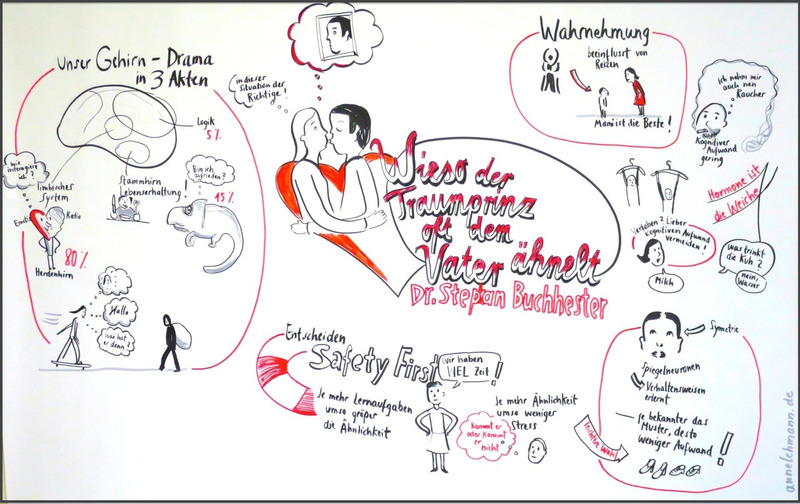 Unser Gehirn - Drama
in 3 Akten
Logik
5%
wie
interagiere
ich?
limbisches
System
Emotio
Ratio
80%
Herdenhirn
Stammhirn
Lebenserhaltung
Bin ich
zufrieden?
15%
Hallo
was hat
er denn?
in dieser
Situation der
Richtige!
Wieso der
Traumprinz
oft dem
Vater ähnelt
Dr. Stephan Buchhester
Wahrnehmung
beeinflusst von
Reizen
Mami ist die Beste!
ich nehm mir
auch nen
Raucher
Kognitiver
Aufwand
gering
Hormone ist
die Weiche
Verloben? Lieber
kognitiven Aufwand
vermeiden!
Milch
was trinkt
die Kuh?
nein,
Wasser
Entscheiden
Safety First
Je mehr Lernaufgaben
umso größer
die Ähnlichkeit
wir haben
VIEL Zeit!
Kommt er
oder kommt
er nicht
Je mehr Ähnlichkeit
umso weniger
Stress
leichtere Wahl
Symetrie
Spiegelneuronen
Verhaltensweisen
erlernt
je bekannter das
Muster, desto
weniger Aufwand!
annelehmann.de